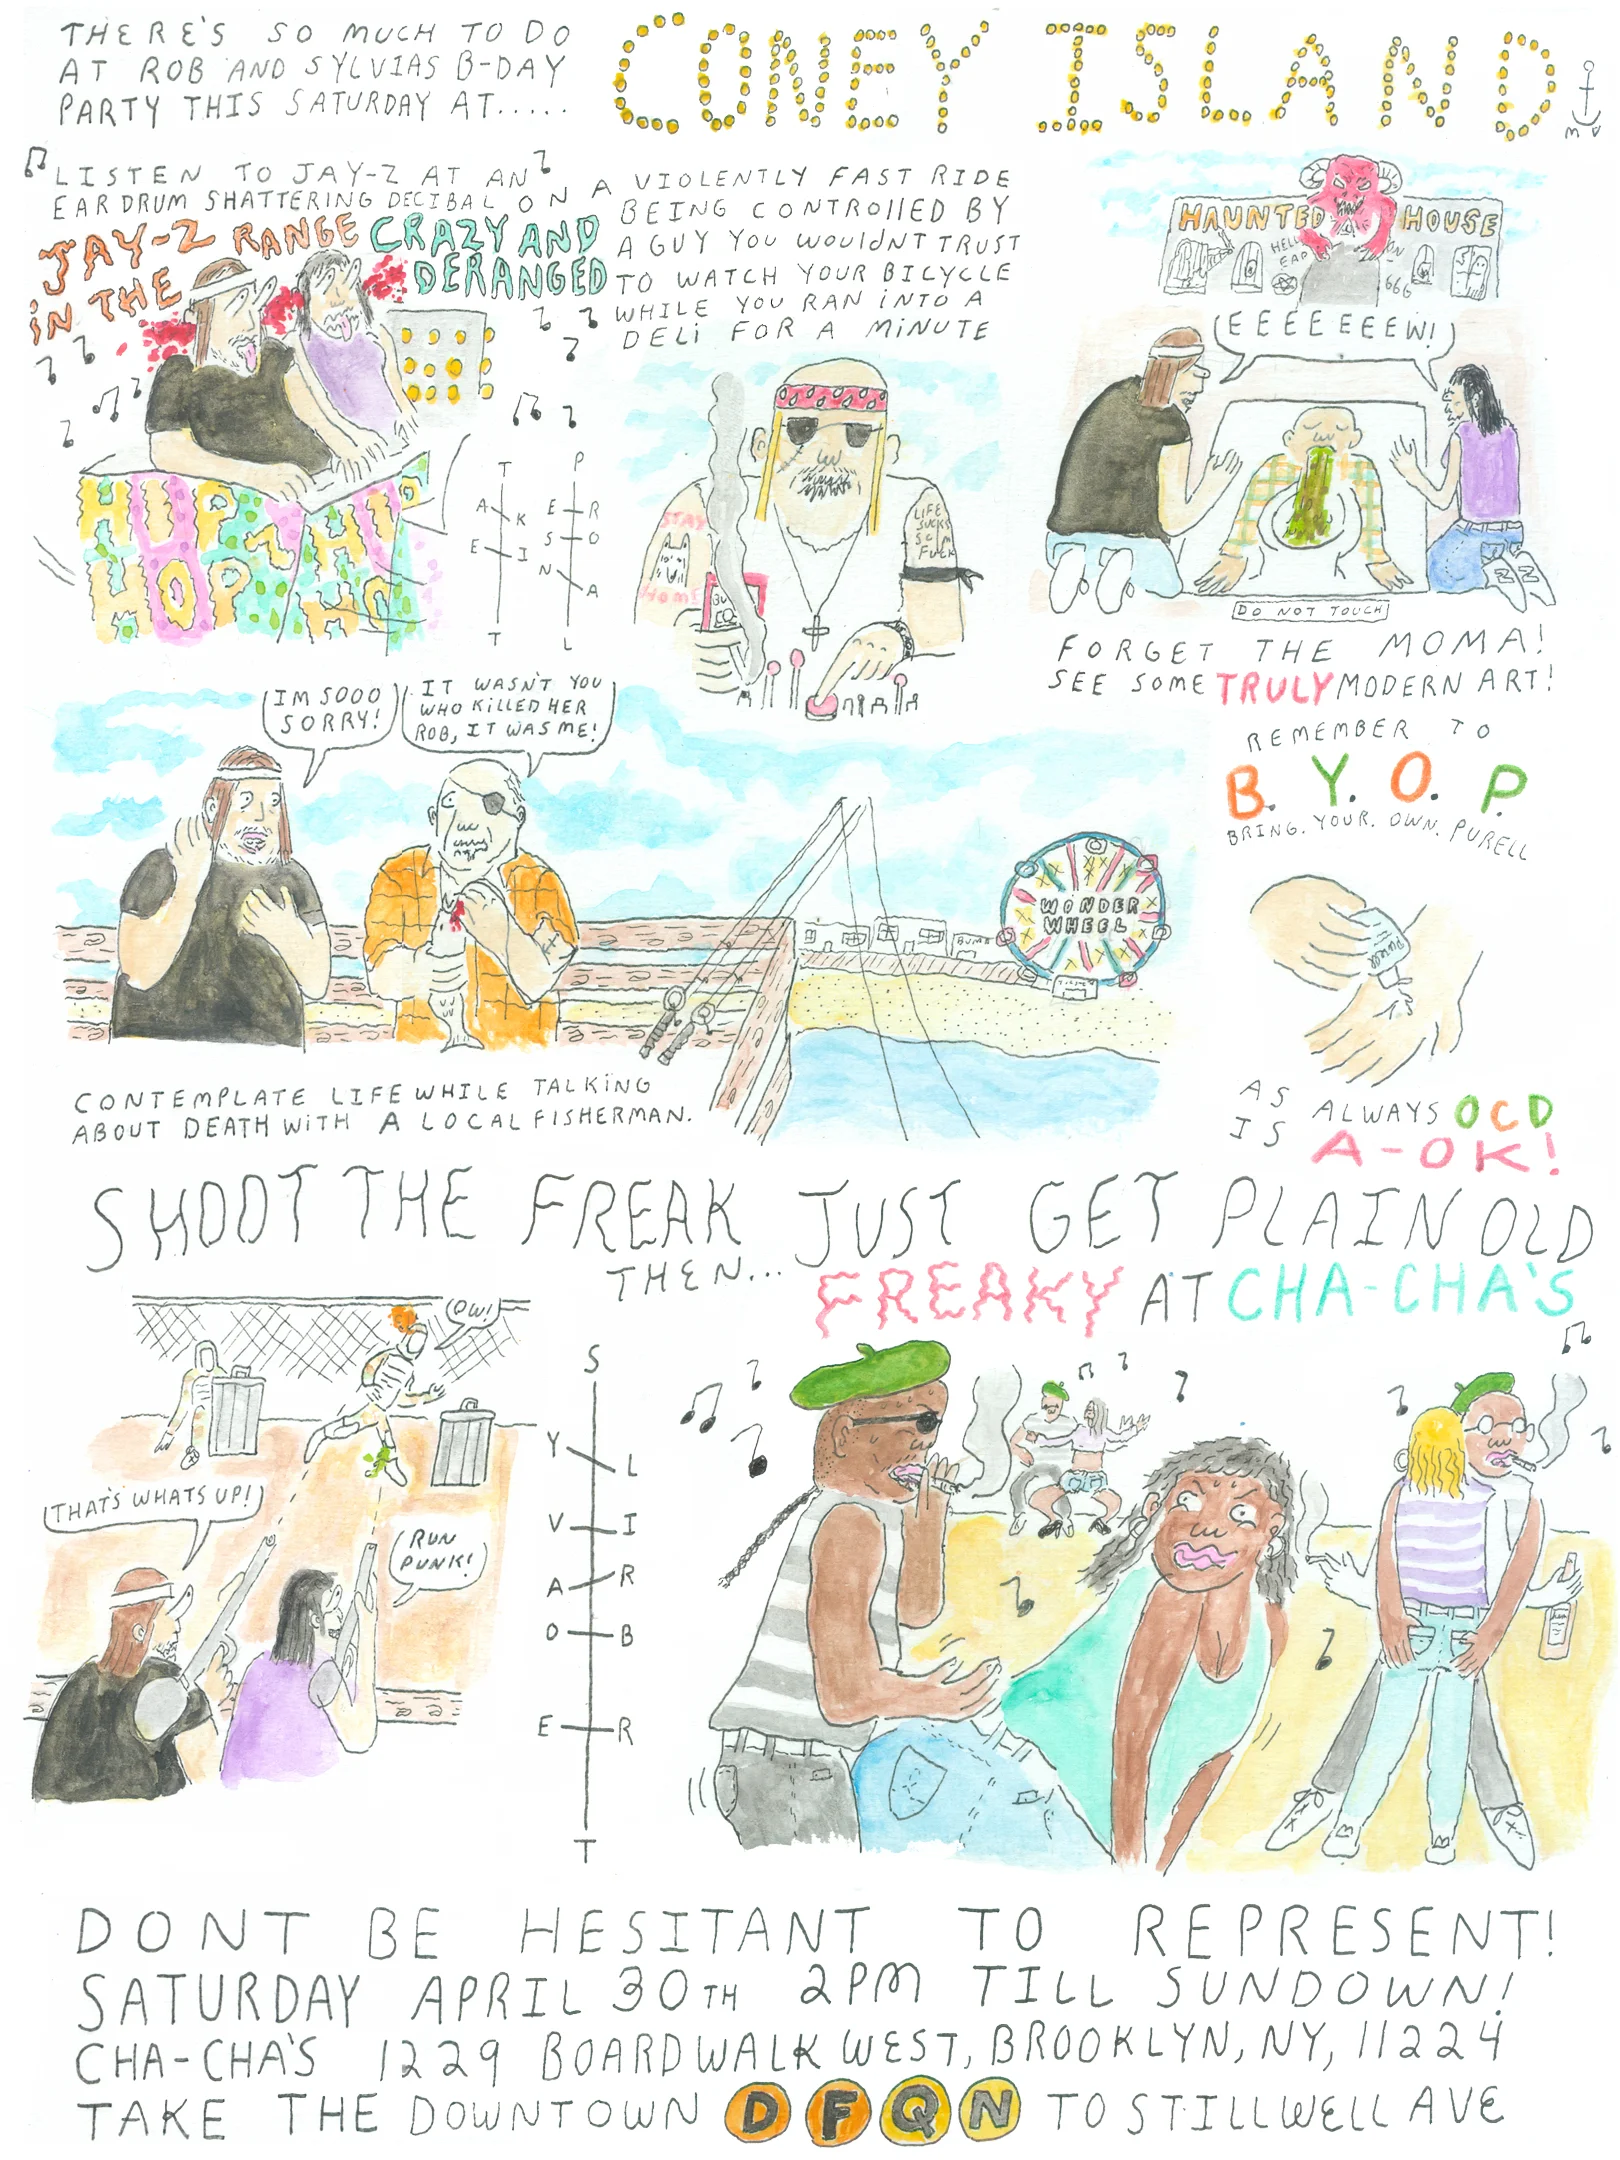 THERE'S SO MUCH TO DO
AT ROB AND SYLVIAS B-DAY
PARTY THIS SATURDAY AT.....
CONEY ISLAND
MD
LISTEN TO JAY-Z AT AN
EAR DRUM SHATTERING DECIBAL ON A
JAY-Z RANGE
IN THE
CRAZY AND
DERANGED
VIOLENTLY FAST RIDE
BEING CONTROllED BY
A GUY YOU WOULDNT TRUST
TO WATCH YOUR BICYCLE
WHILE YOU RAN INTO A
DELI FOR A MINUTE
HIP HIP
HOP HO
TAKE IT
PERSONAL
STAY
HOME
LIFE
SUCKS
SO IM
FUCK
HAUNTED HOUSE
666
EEEEEEEW!
DO NOT TOUCH
FORGET THE MOMA!
SEE SOME TRULY MODERN ART!
IM SOOO
SORRY!
IT WASN'T YOU
WHO KILLED HER
ROB, IT WAS ME!
WONDER
WHEEL
CONTEMPLATE LIFE WHILE TALKING
ABOUT DEATH WITH A LOCAL FISHERMAN.
REMEMBER TO
B. Y. O. P
BRING. YOUR. OWN. PURELL
AS ALWAYS OCD
IS A-OK!
SHOOT THE FREAK
THEN...
JUST GET PLAIN OLD
FREAKY AT CHA-CHA'S
OW!
THAT'S WHATS UP!
RUN
PUNK!
SYLVIA
ROBERT
DONT BE HESITANT TO REPRESENT!
SATURDAY APRIL 30TH 2PM TILL SUNDOWN!
CHA-CHA'S 1229 BOARDWALK WEST, BROOKLYN, NY, 11224
TAKE THE DOWNTOWN D F Q N TO STILLWELL AVE